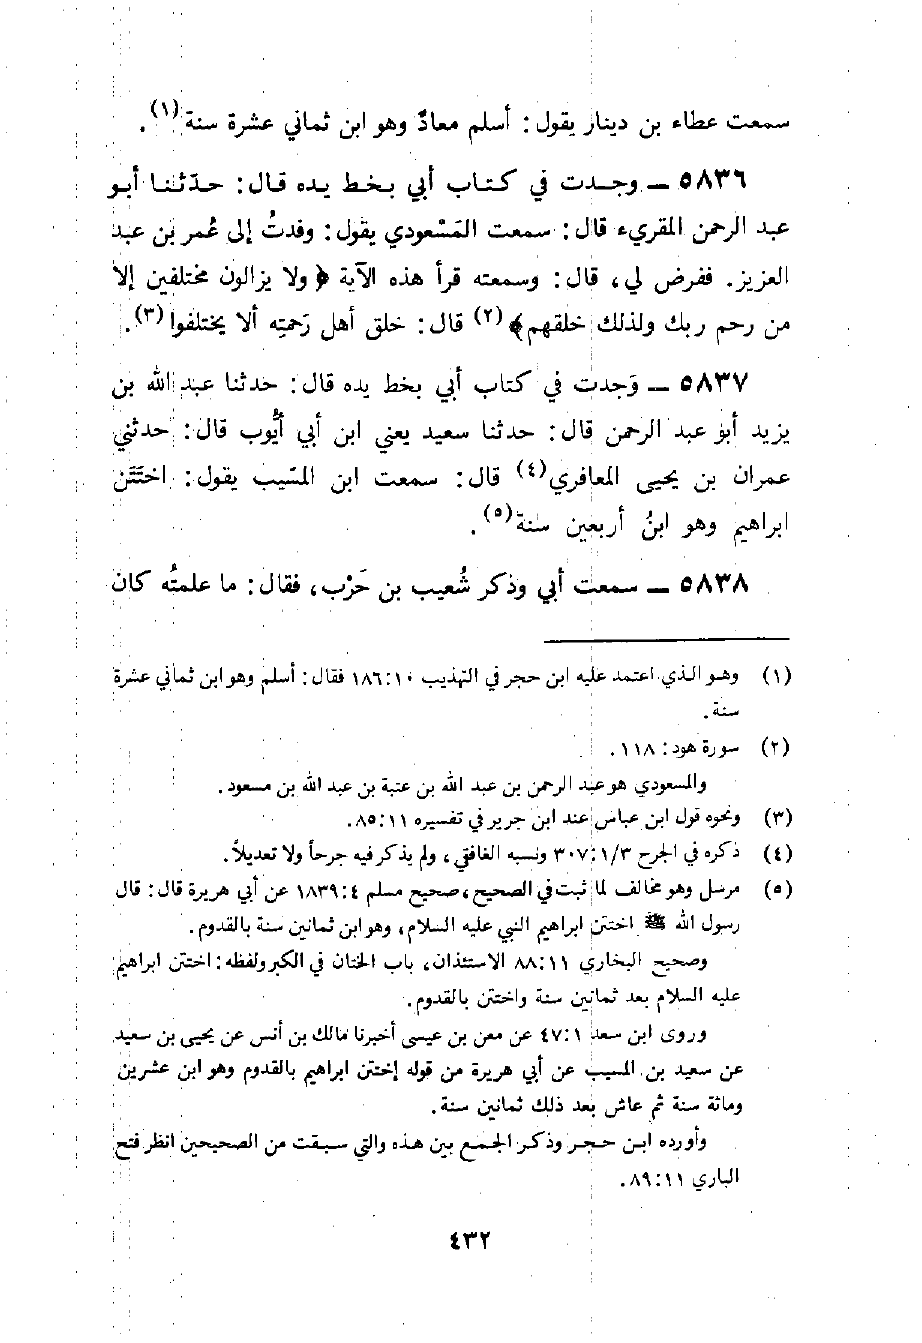 سمعت عطاء بن دينار يقول: أسلم معاذٌ وهو ابن ثماني عشرة سنة(١).
٥٨٣٦ ــ وجدت في كتاب أبي بخط يده قال: حدّثنا أبو
عبد الرحمن المقريء قال: سمعت المَسْعودي يقول: وفدتُ إلى عُمر بن عبد
العزيز. ففرض لي، قال: وسمعته قرأ هذه الآية ﴿ولا يزالون مختلفين إلا
من رحم ربك ولذلك خلقهم﴾(٢) قال: خلق أهل رَحمتِه ألا يختلفوا(٣).
٥٨٣٧ ــ وَجدت في كتاب أبي بخط يده قال: حدثنا عبد الله بن
يزيد أبو عبد الرحمن قال: حدثنا سعيد يعني ابن أبي أيُّوب قال: حدثني
عمران بن يحيى المعافري(٤) قال: سمعت ابن المسّيب يقول: اختَتَن
ابراهيم وهو ابنُ أربعين سنة(٥).
٥٨٣٨ ــ سمعت أبي وذكر شُعيب بن حَرْب، فقال: ما علمتُه كان
(١) وهو الذي اعتمد عليه ابن حجر في التهذيب ١٨٦:١٠ فقال: أسلم وهو ابن ثماني عشرة
سنة.
(٢) سورة هود: ١١٨.
والمسعودي هو عبد الرحمن بن عبد الله بن عتبة بن عبد الله بن مسعود.
(٣) ونحوه قول ابن عباس عند ابن جرير في تفسيره ٨٥:١١.
(٤) ذكره في الجرح ٣٠٧:١/٣ ونسبه الغافقي، ولم يذكر فيه جرحاً ولا تعديلاً.
(٥) مرسل وهو مخالف لما ثبت في الصحيح، صحيح مسلم ١٨٣٩:٤ عن أبي هريرة قال: قال
رسول الله ﷺ اختتن ابراهيم النبي عليه السلام، وهو ابن ثمانين سنة بالقدوم.
وصحيح البخاري ٨٨:١١ الاستئذان، باب الختان في الكبر ولفظه: اختتن ابراهيم
عليه السلام بعد ثمانين سنة واختتن بالقدوم.
وروى ابن سعد ٤٧:١ عن معن بن عيسى أخبرنا مالك بن أنس عن يحيى بن سعيد
عن سعيد بن المسيب عن أبي هريرة من قوله إختتن ابراهيم بالقدوم وهو ابن عشرين
ومائة سنة ثم عاش بعد ذلك ثمانين سنة.
وأورده ابن حجر وذكر الجمع بين هذه والتي سبقت من الصحيحين انظر فتح
الباري ٨٩:١١.
٤٣٢